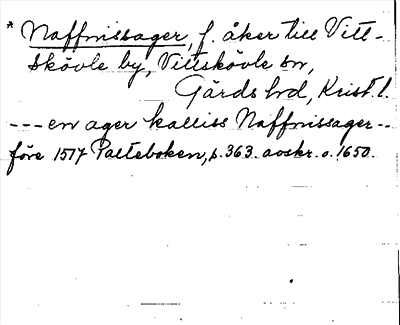 * Naffnissager, f. åker till Vitt-
skövle by, Vittskövle sn,
Gärds hd, Krist. l.
--- en ager kalliss Naffnissager --
före 1517 Palteboken, s. 363. avskr. o. 1650.